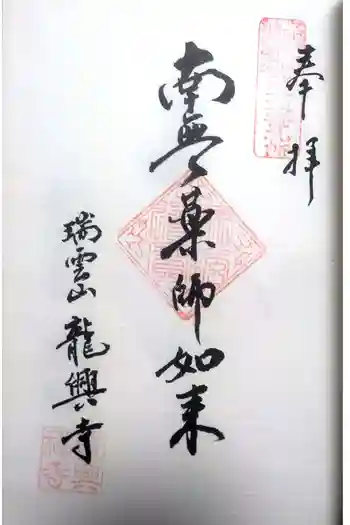 奉拝
南無薬師如来
瑞雲山 龍興寺